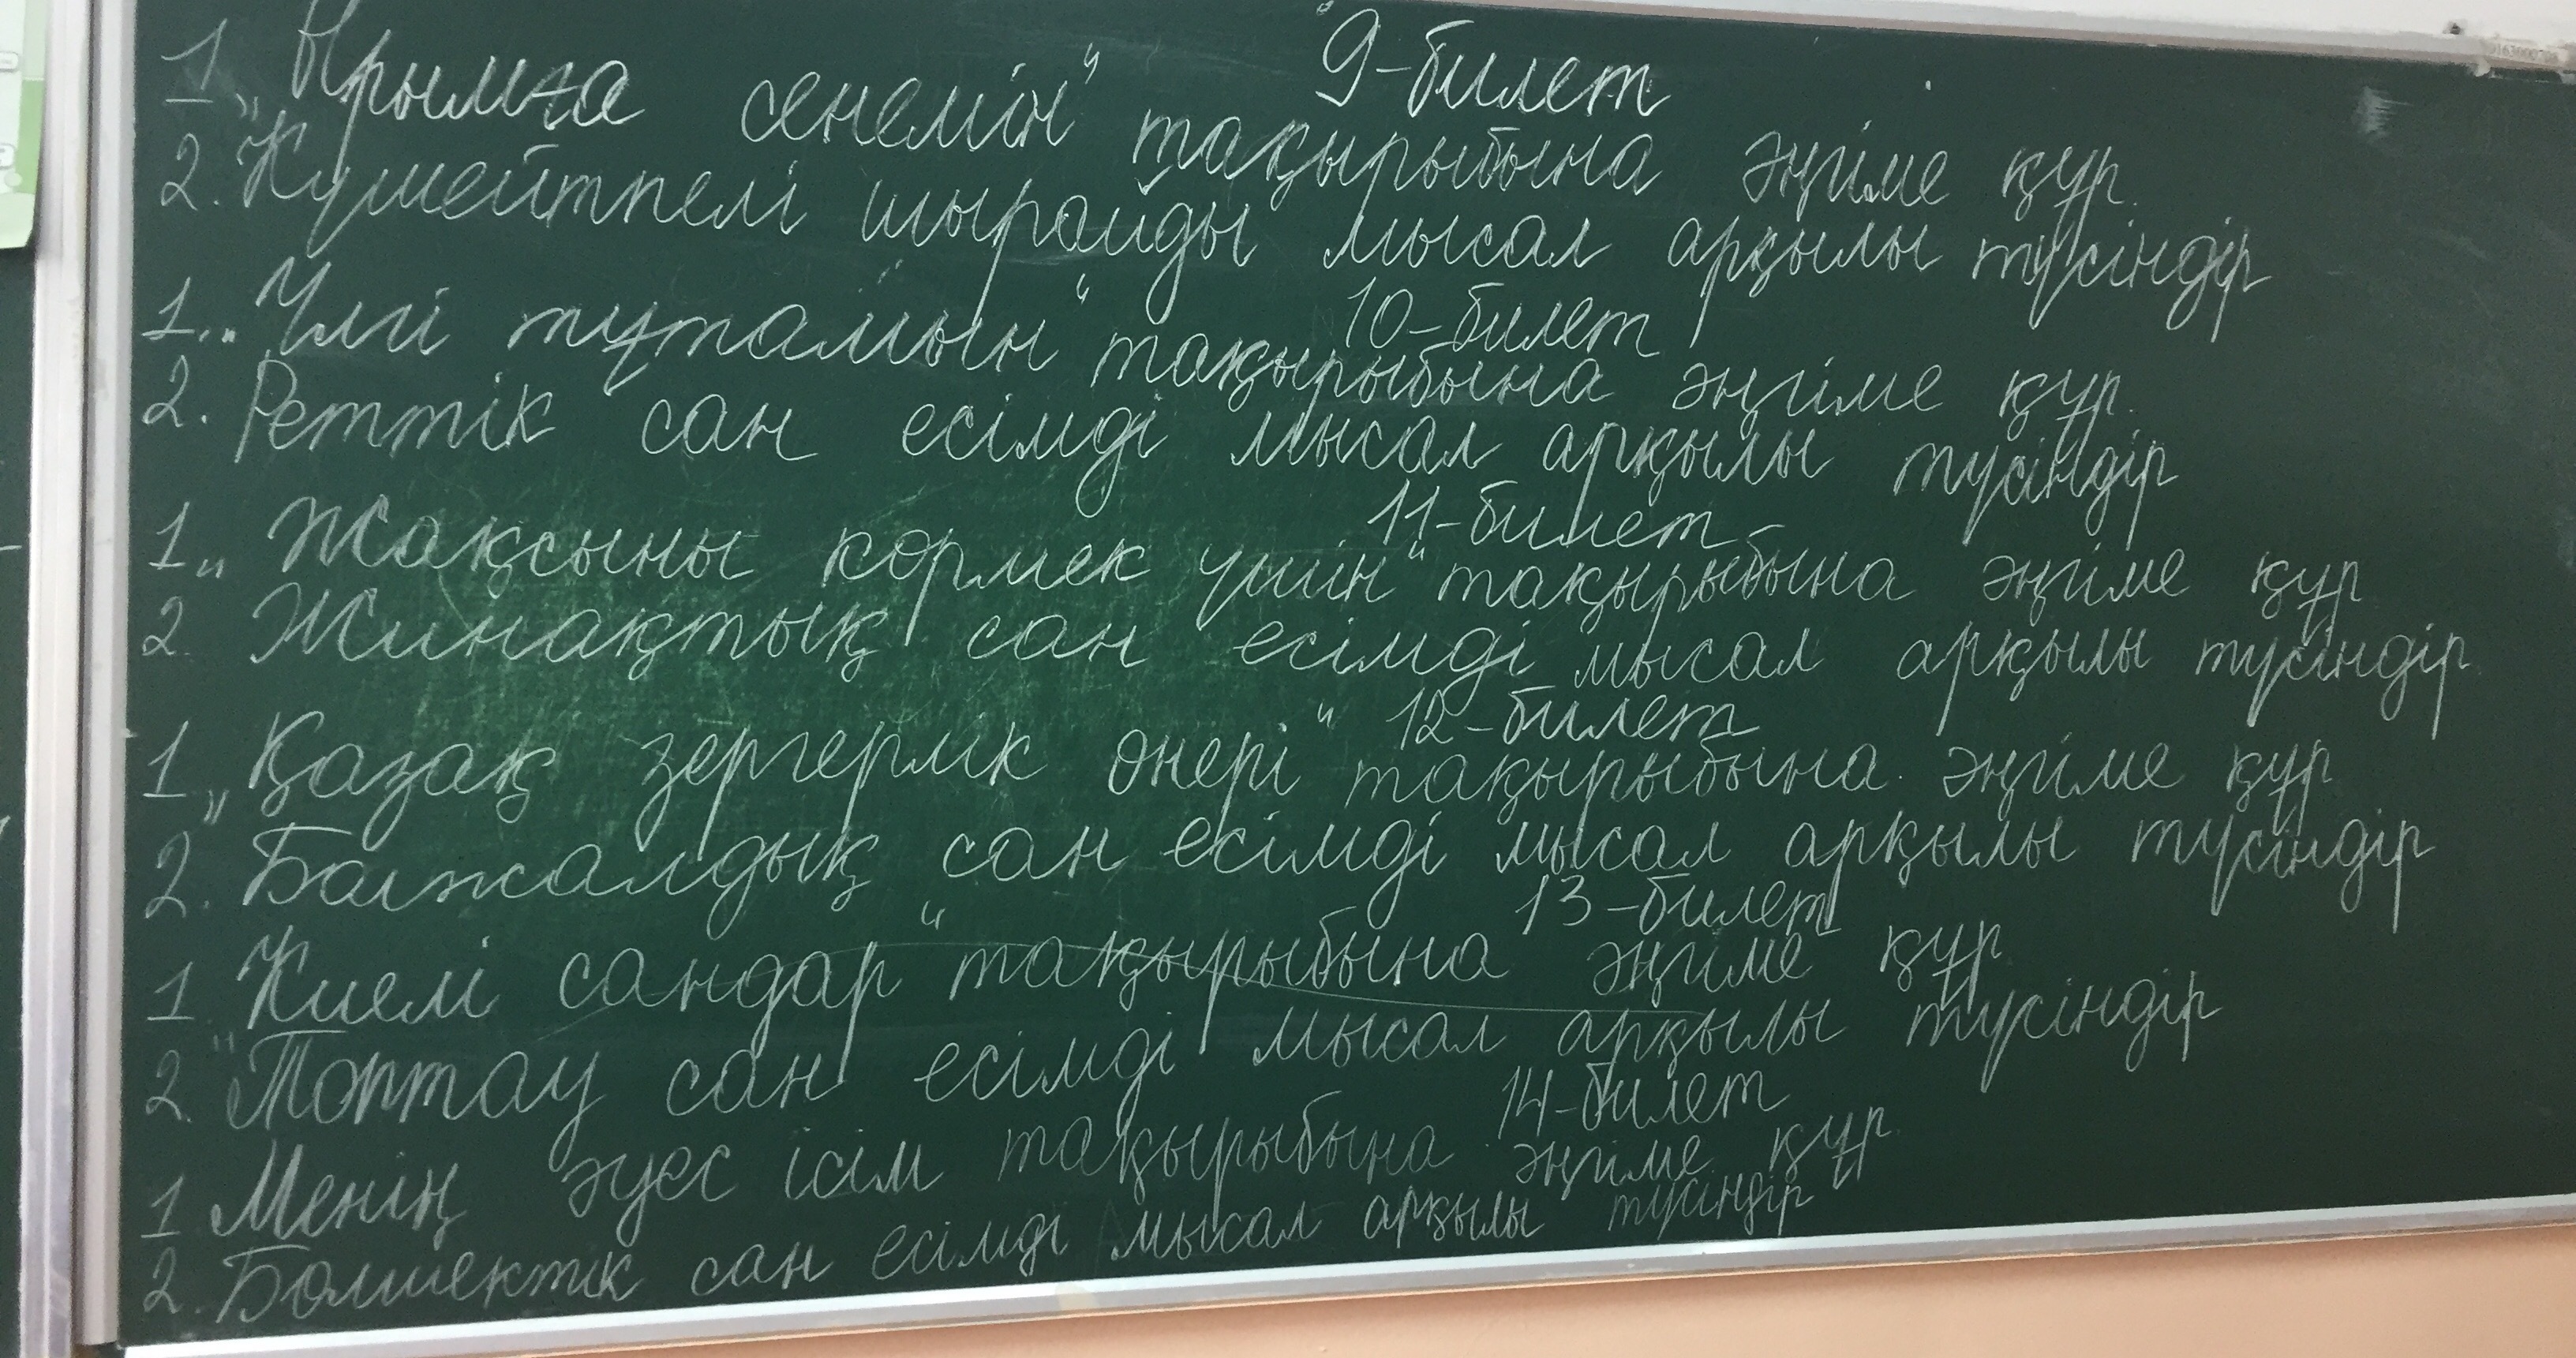 9-билет
1. "Ырымға сенемін" тақырыбына әңгіме құр.
2. Күшейтпелі шырайды мысал арқылы түсіндір
10-билет
1. "Үлгі тұтамын" тақырыбына әңгіме құр.
2. Реттік сан есімді мысал арқылы түсіндір
11-билет
1. "Жақсыны көрмек үшін" тақырыбына әңгіме құр
2. Жинақтық сан есімді мысал арқылы түсіндір
12-билет
1. "Қазақ зергерлік өнері" тақырыбына әңгіме құр
2. Болжалдық сан есімді мысал арқылы түсіндір
13-билет
1. "Киелі сандар" тақырыбына әңгіме құр
2. Топтау сан есімді мысал арқылы түсіндір
14-билет
1. Менің әуес ісім тақырыбына әңгіме құр.
2. Бөлшектік сан есімді мысал арқылы түсіндір